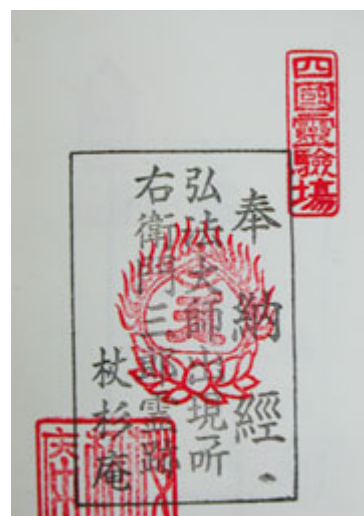 四國靈驗場
奉納経
弘法大師出現所
右衛門三郎霊跡
杖杉庵